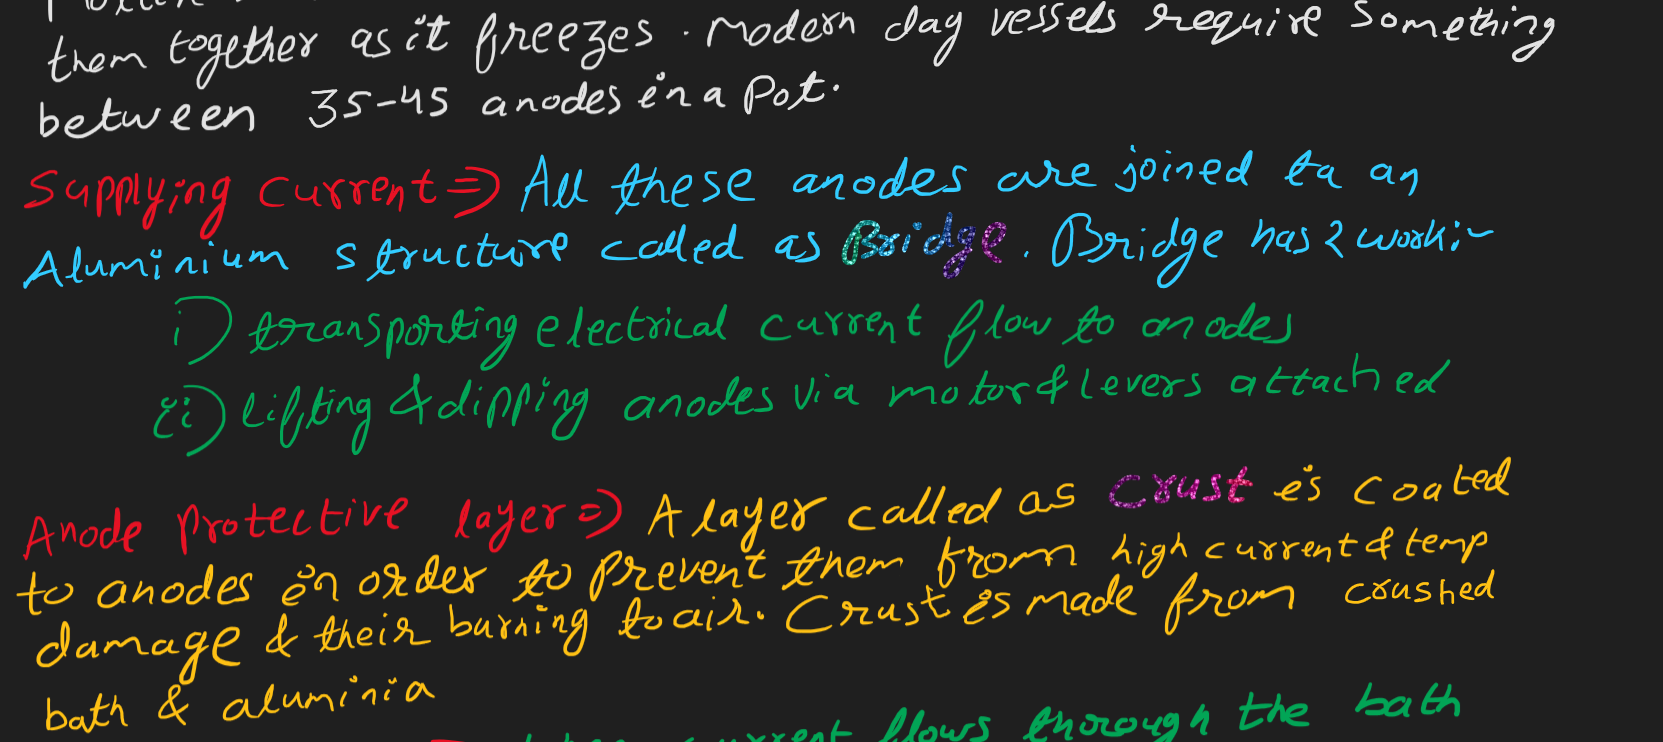 them together as it freezes. Modern day vessels require something
between 35-45 anodes in a pot.
Supplying current ⇒ All these anodes are joined ta an
Aluminium structure called as Bridge. Bridge has 2 work:-
i) transporting electrical current flow to anodes
ii) lifting & dipping anodes via motor & levers attached
Anode protective layer ⇒ A layer called as Crust is coated
to anodes in order to prevent them from high current & temp
damage & their burning to air. Crust is made from crushed
bath & aluminia
current flows thorough the bath